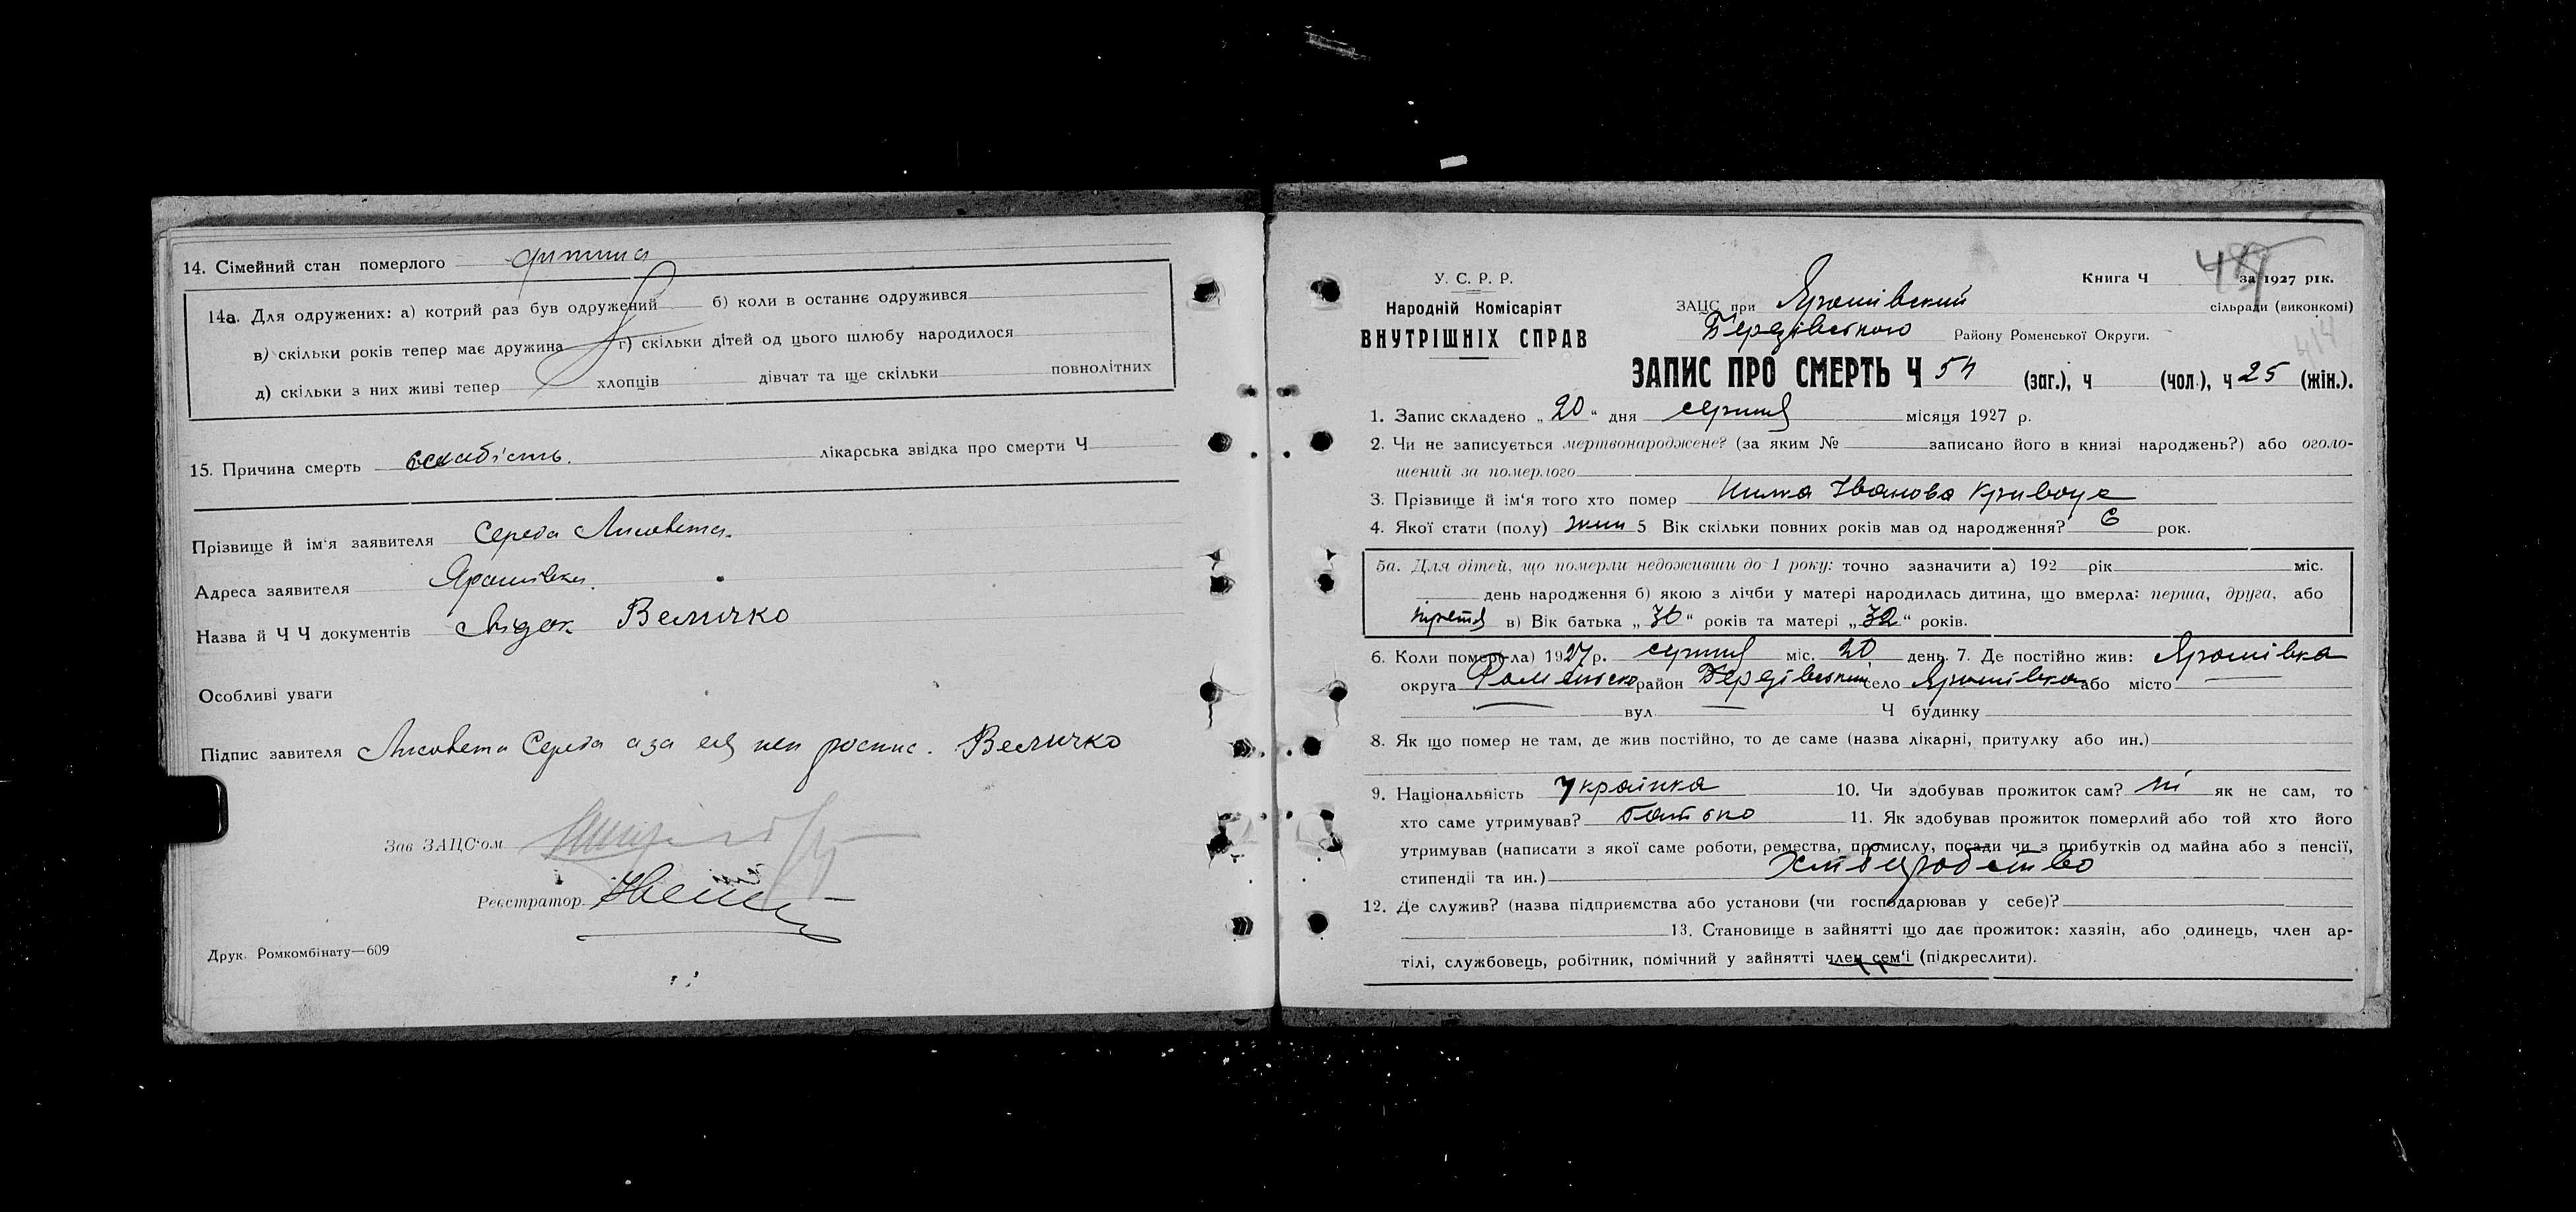 14. Сімейний стан померлого дитина
14а. Для одружених: а) котрий раз був одружений б) коли в останнє одружився
в) скільки років тепер має дружина г) скільки дітей од цього шлюбу народилося
д) скільки з них живі тепер хлопців дівчат та ще скільки повнолітних
15. Причина смерть слабість. лікарська звідка про смерти Ч
Прізвище й ім'я заявителя Середа Лисовета.
Адреса заявителя Ярошівка.
Назва й Ч Ч документів свідок Величко
Особливі уваги
Підпис завителя Лисовета Середа а за неї роспис. Величко
Зав ЗАЦС'ом
Реєстратор
Друк. Ромкомбінату—609
У. С. Р. Р.
Народній Комісаріят
ВНУТРІШНІХ СПРАВ
Книга Ч за 1927 рік.
ЗАЦС при Ярошівский сільради (виконкомі)
Району Роменської Округи.
414
ЗАПИС ПРО СМЕРТЬ Ч 54 (заг.), ч (чол.), ч 25 (жін.).
1. Запис складено „20“ дня серпня місяця 1927 р.
2. Чи не записується мертвонароджене? (за яким № записано його в книзі народжень?) або оголо-
шений за померлого
3. Прізвище й ім'я того хто помер Іванова Кривоус
4. Якої стати (полу) жин 5 Вік скільки повних років мав од народження? 6 рок.
5а. Для дітей, що померли недоживши до 1 року: точно зазначити а) 192 рік міс.
день народження б) якою з лічби у матері народилась дитина, що вмерла: перша, друга, або
третя в) Вік батька „30“ років та матері „32“ років.
6. Коли помер(-ла) 1927 р. серпня міс. 20 день. 7. Де постійно жив: Ярошівка
округа Роменсько район село Ярошівка або місто
вул. Ч будинку
8. Як що помер не там, де жив постійно, то де саме (назва лікарні, притулку або ин.)
9. Національність Українка 10. Чи здобував прожиток сам? ні як не сам, то
хто саме утримував? батько 11. Як здобував прожиток померлий або той хто його
утримував (написати з якої саме роботи, ремества, промислу, посади чи з прибутків од майна або з пенсії,
стипендії та ин.) хлібробство
12. Де служив? (назва підприємства або установи (чи господарював у себе)?
13. Становище в зайнятті що дає прожиток: хазяін, або одинець, член ар-
тілі, службовець, робітник, помічний у зайнятті член сем'і (підкреслити).